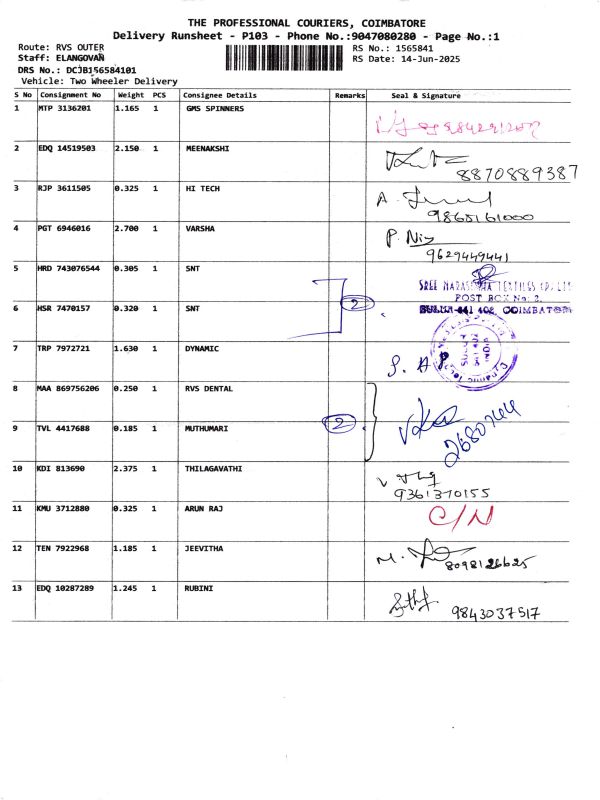 THE PROFESSIONAL COURIERS, COIMBATORE
Delivery Runsheet - P103 - Phone No.:9047080280 - Page No.:1
Route: RVS OUTER
RS No.: 1565841
Staff: ELANGOVAN
RS Date: 14-Jun-2025
DRS No.: DCJB156584101
Vehicle: Two Wheeler Delivery
S No Consignment No Weight PCS Consignee Details Remarks Seal & Signature
1 MTP 3136201 1.165 1 GMS SPINNERS
2 EDQ 14519503 2.150 1 MEENAKSHI
8870889387
3 RJP 3611505 0.325 1 HI TECH
A.
9865161000
4 PGT 6946016 2.700 1 VARSHA
P.
9629449441
5 HRD 743076544 0.305 1 SNT
SREE NARASIMHA TEXTILES (P) LTD
POST BOX No. 2,
2
6 HSR 7470157 0.320 1 SNT
SULUR-641 402, COIMBATORE
7 TRP 7972721 1.630 1 DYNAMIC
8 MAA 869756206 0.250 1 RVS DENTAL
2680744
9 TVL 4417688 0.185 1 MUTHUMARI 2
10 KDI 813690 2.375 1 THILAGAVATHI
9361370155
11 KMU 3712880 0.325 1 ARUN RAJ C/N
12 TEN 7922968 1.185 1 JEEVITHA M.
8098126625
13 EDQ 10287289 1.245 1 RUBINI
9843037517